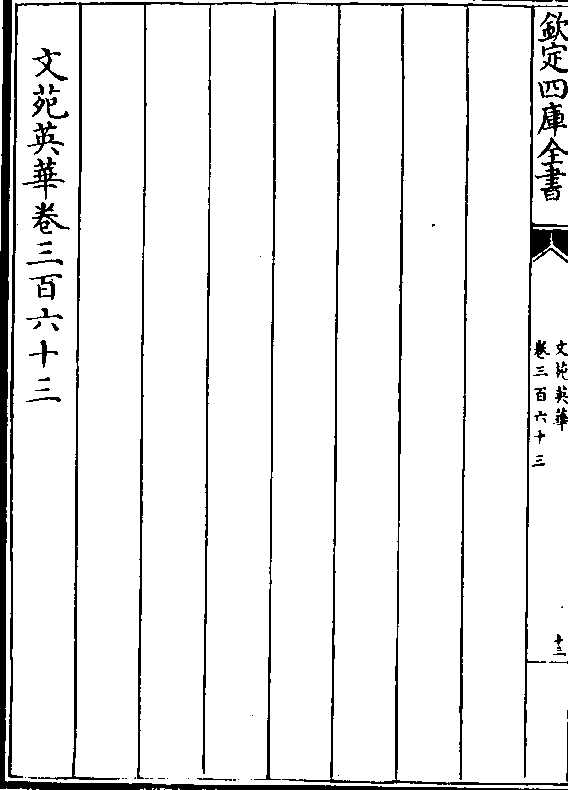 欽定四庫全書
文苑英華
卷三百六十三
十三
文苑英華卷三百六十三